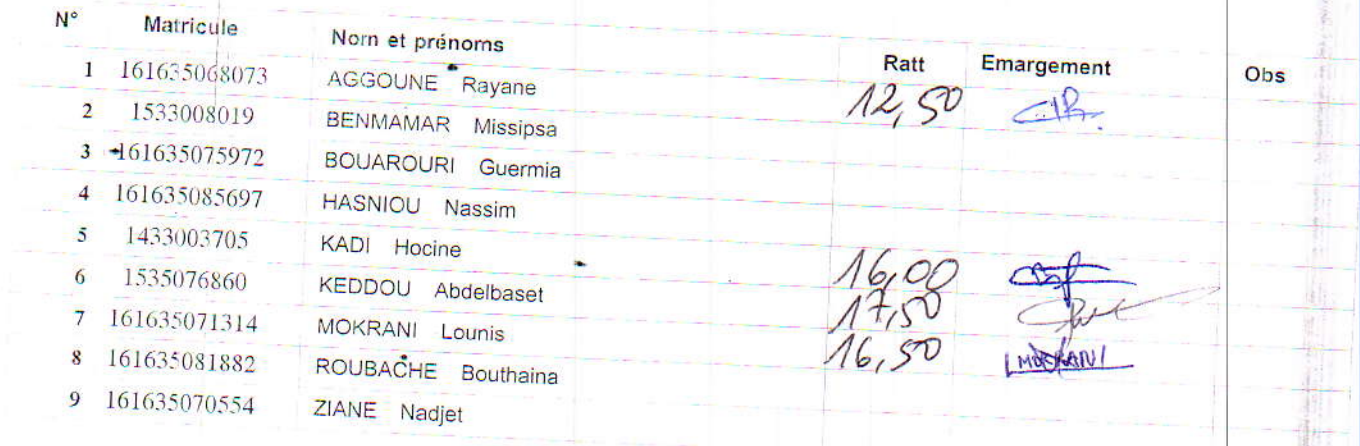 N° Matricule Nom et prénoms Ratt Emargement Obs
1 161635068073 AGGOUNE Rayane 12,50
2 1533008019 BENMAMAR Missipsa
3 161635075972 BOUAROURI Guermia
4 161635085697 HASNIOU Nassim
5 1433003705 KADI Hocine 16,00
6 1535076860 KEDDOU Abdelbaset 17,50
7 161635071314 MOKRANI Lounis 16,50 MOKRANI
8 161635081882 ROUBACHE Bouthaina
9 161635070554 ZIANE Nadjet